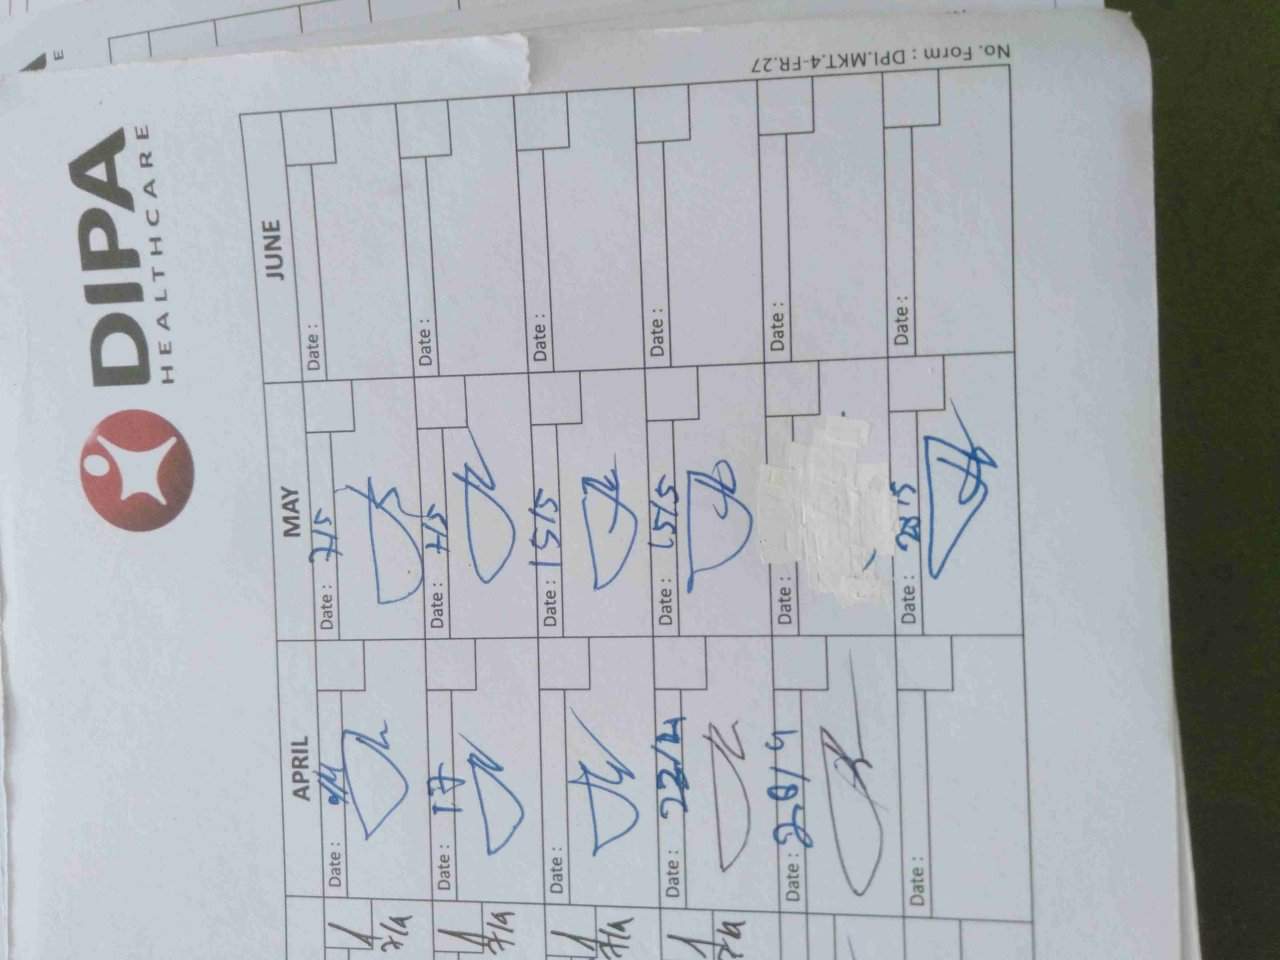 DIPA
HEALTHCARE
APRIL MAY JUNE
Date : 9/4 Date : 7/5 Date :
Date : 17 Date : 7/5 Date :
Date : Date : 15/5 Date :
Date : 22/4 Date : 15/5 Date :
Date : 28/4 Date : Date :
Date : Date : 28/5 Date :
No. Form : DPI.MKT.4-FR.27